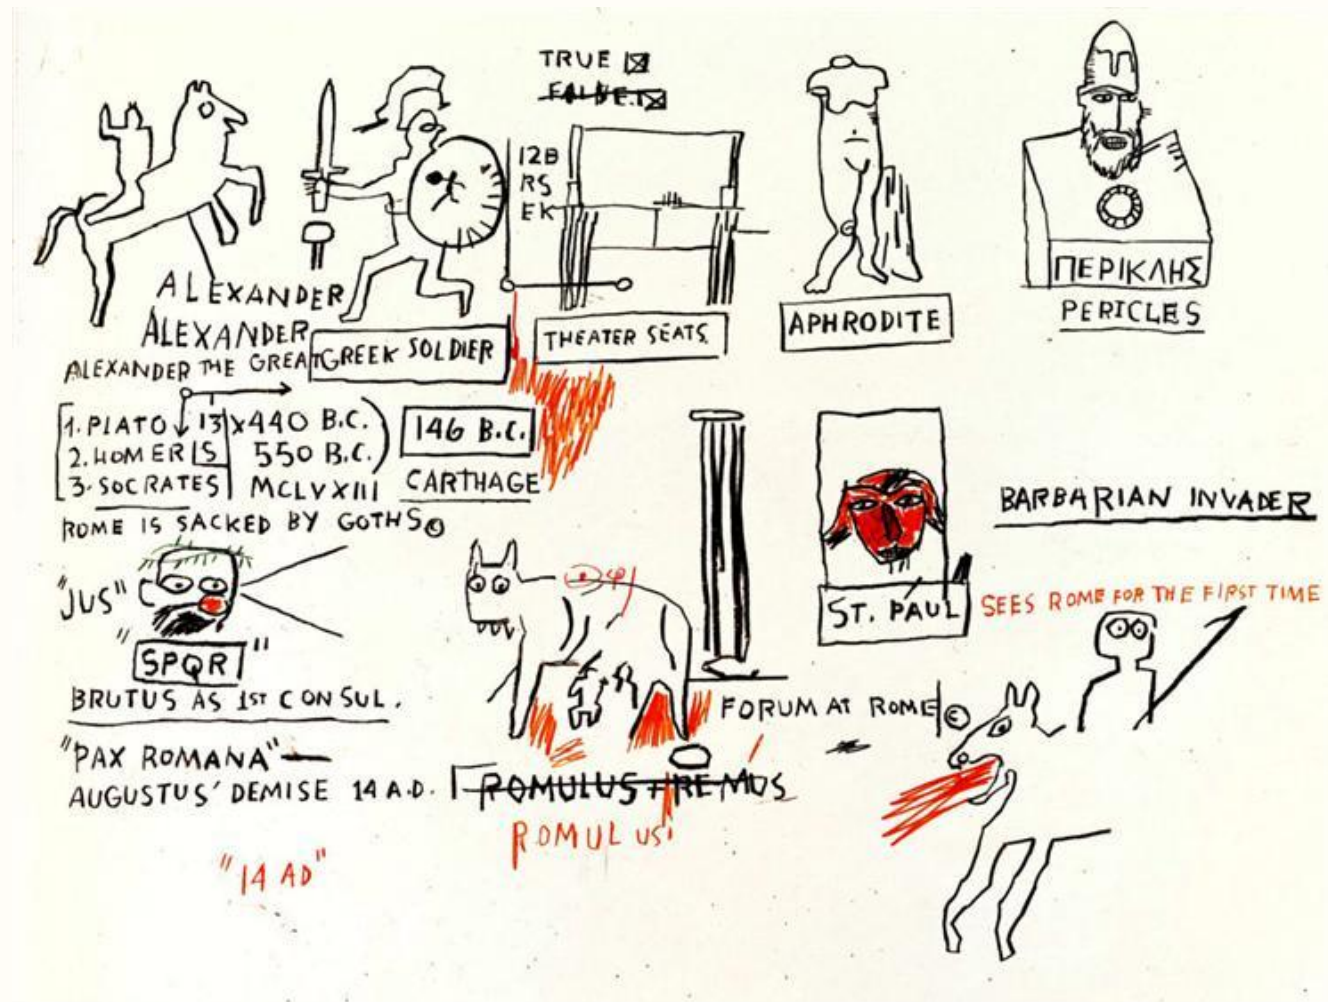 TRUE
FALSE.
12B
RS
EK
ALEXANDER
ALEXANDER
ALEXANDER THE GREAT
GREEK SOLDIER
THEATER SEATS.
APHRODITE
ΠΕΡΙΚΛΗΣ
PERICLES
1. PLATO 13 x 440 B.C.
2. HOMER IS 550 B.C.
3. SOCRATES MCLVXIII
146 B.C.
CARTHAGE
ROME IS SACKED BY GOTHS©
"JUS"
SPQR"
BRUTUS AS 1ST CONSUL.
"PAX ROMANA"
AUGUSTUS' DEMISE 14 A.D.
"14 AD"
ROMULUS + REMUS
ROMULUS
FORUM AT ROME ©
ST. PAUL
BARBARIAN INVADER
SEES ROME FOR THE FIRST TIME